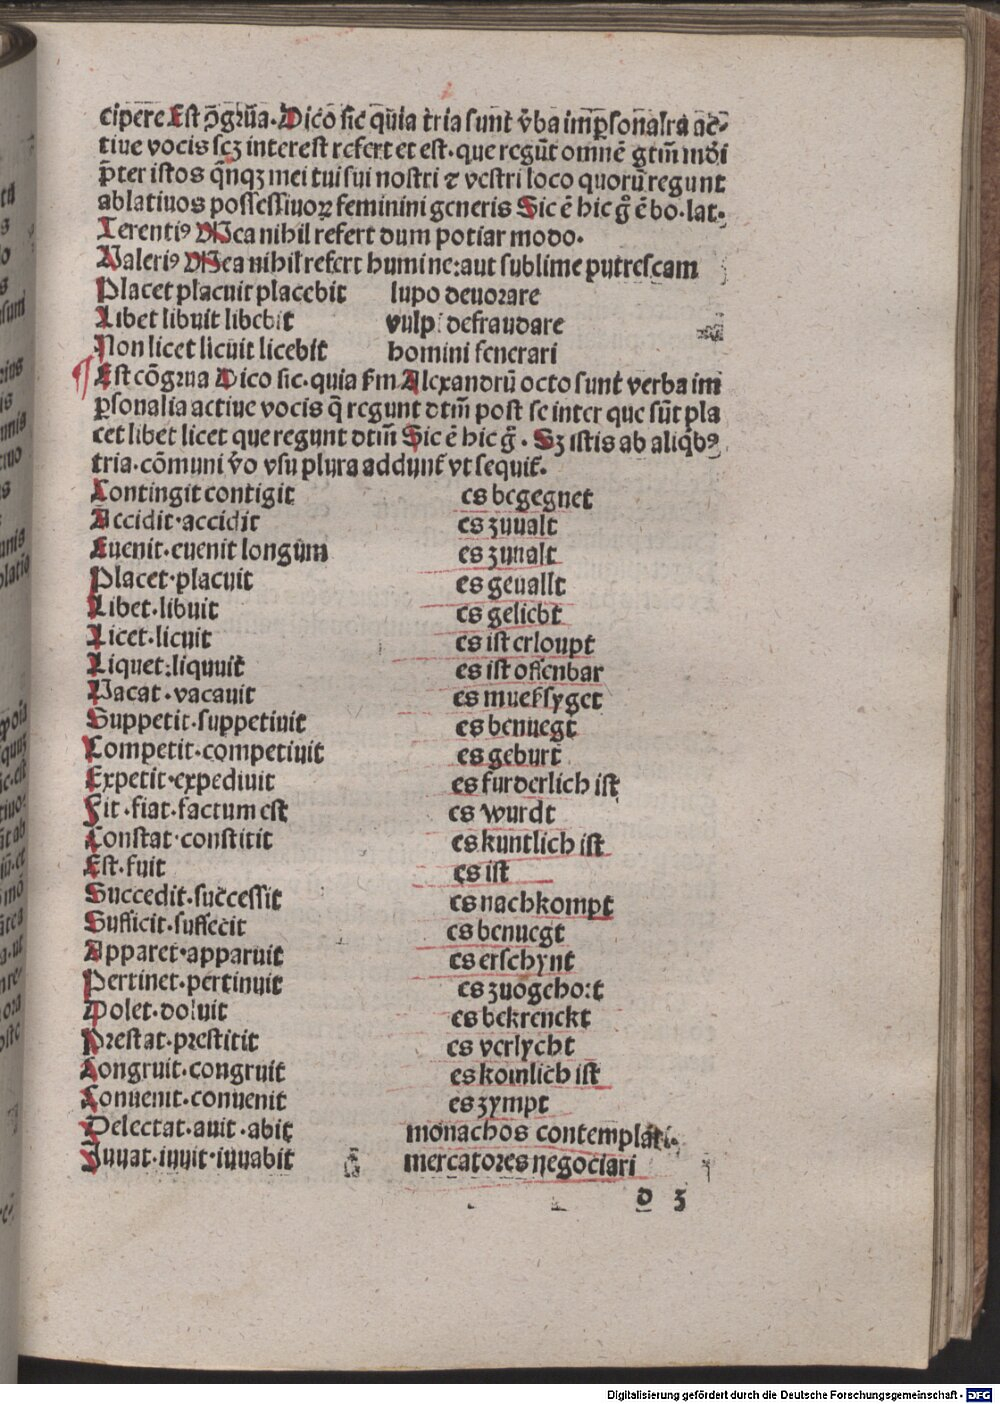 cipere Est ꝯgrūa. Dico sic quia tria sunt v̄ba imꝑsonalia ac-
tiue vocis scꝫ interest refert et est. que regūt omnē gtm̄ mōi
p̄ter istos q̄nqꝫ mei tui sui nostri ⁊ vestri loco quorū regunt
ablatiuos possessiuoꝝ feminini generis Sic ē hic gͦ ē bo. lat.
Terentiꝰ Mea nihil refert dum potiar modo.
Valeriꝰ Mea nihil refert humi ne: aut sublime putrescam
Placet placuit placebit lupo deuorare
Libet libuit libebit vulpi defraudare
Non licet licuit licebit homini fenerari
¶ Est cōgrua Dico sic. quia ẜm Alexandrū octo sunt verba im
ꝑsonalia actiue vocis q̄ regunt dtm̄ post se inter que sūt pla
cet libet licet que regunt dtm̄ Sic ē hic gͦ. Sꝫ istis ab aliqbꝰ
tria. cōmuni v̄o vsu plura addunt̄ vt sequit̄.
Contingit contigit es begegnet
Accidit. accidit es zuualt
Euenit. euenit longum es zuualt
Placet. placuit es geuallt
Libet. libuit es geliebt
Licet. licuit es ist erloupt
Liquet: liquuit es ist offenbar
Vacat. vacauit es muessyget
Suppetit. suppetiuit es benuegt
Competit. competiuit es geburt
Expetit. expediuit es furderlich ist
Fit. fiat. factum est es wurdt
Constat. constitit es kuntlich ist
Est. fuit es ist
Succedit. successit es nachkompt
Sufficit. suffecit es benuegt
Apparet. apparuit es erschynt
Pertinet. pertinuit es zuogehort
Dolet. doluit es bekrenckt
Prestat. prestitit es verlycht
Congruit. congruit es komlich ist
Conuenit. conuenit es zympt
Delectat. auit. abit monachos contemplari.
Juuat. iuuit. iuuabit mercatores negociari
d 3
Digitalisierung gefördert durch die Deutsche Forschungsgemeinschaft - DFG